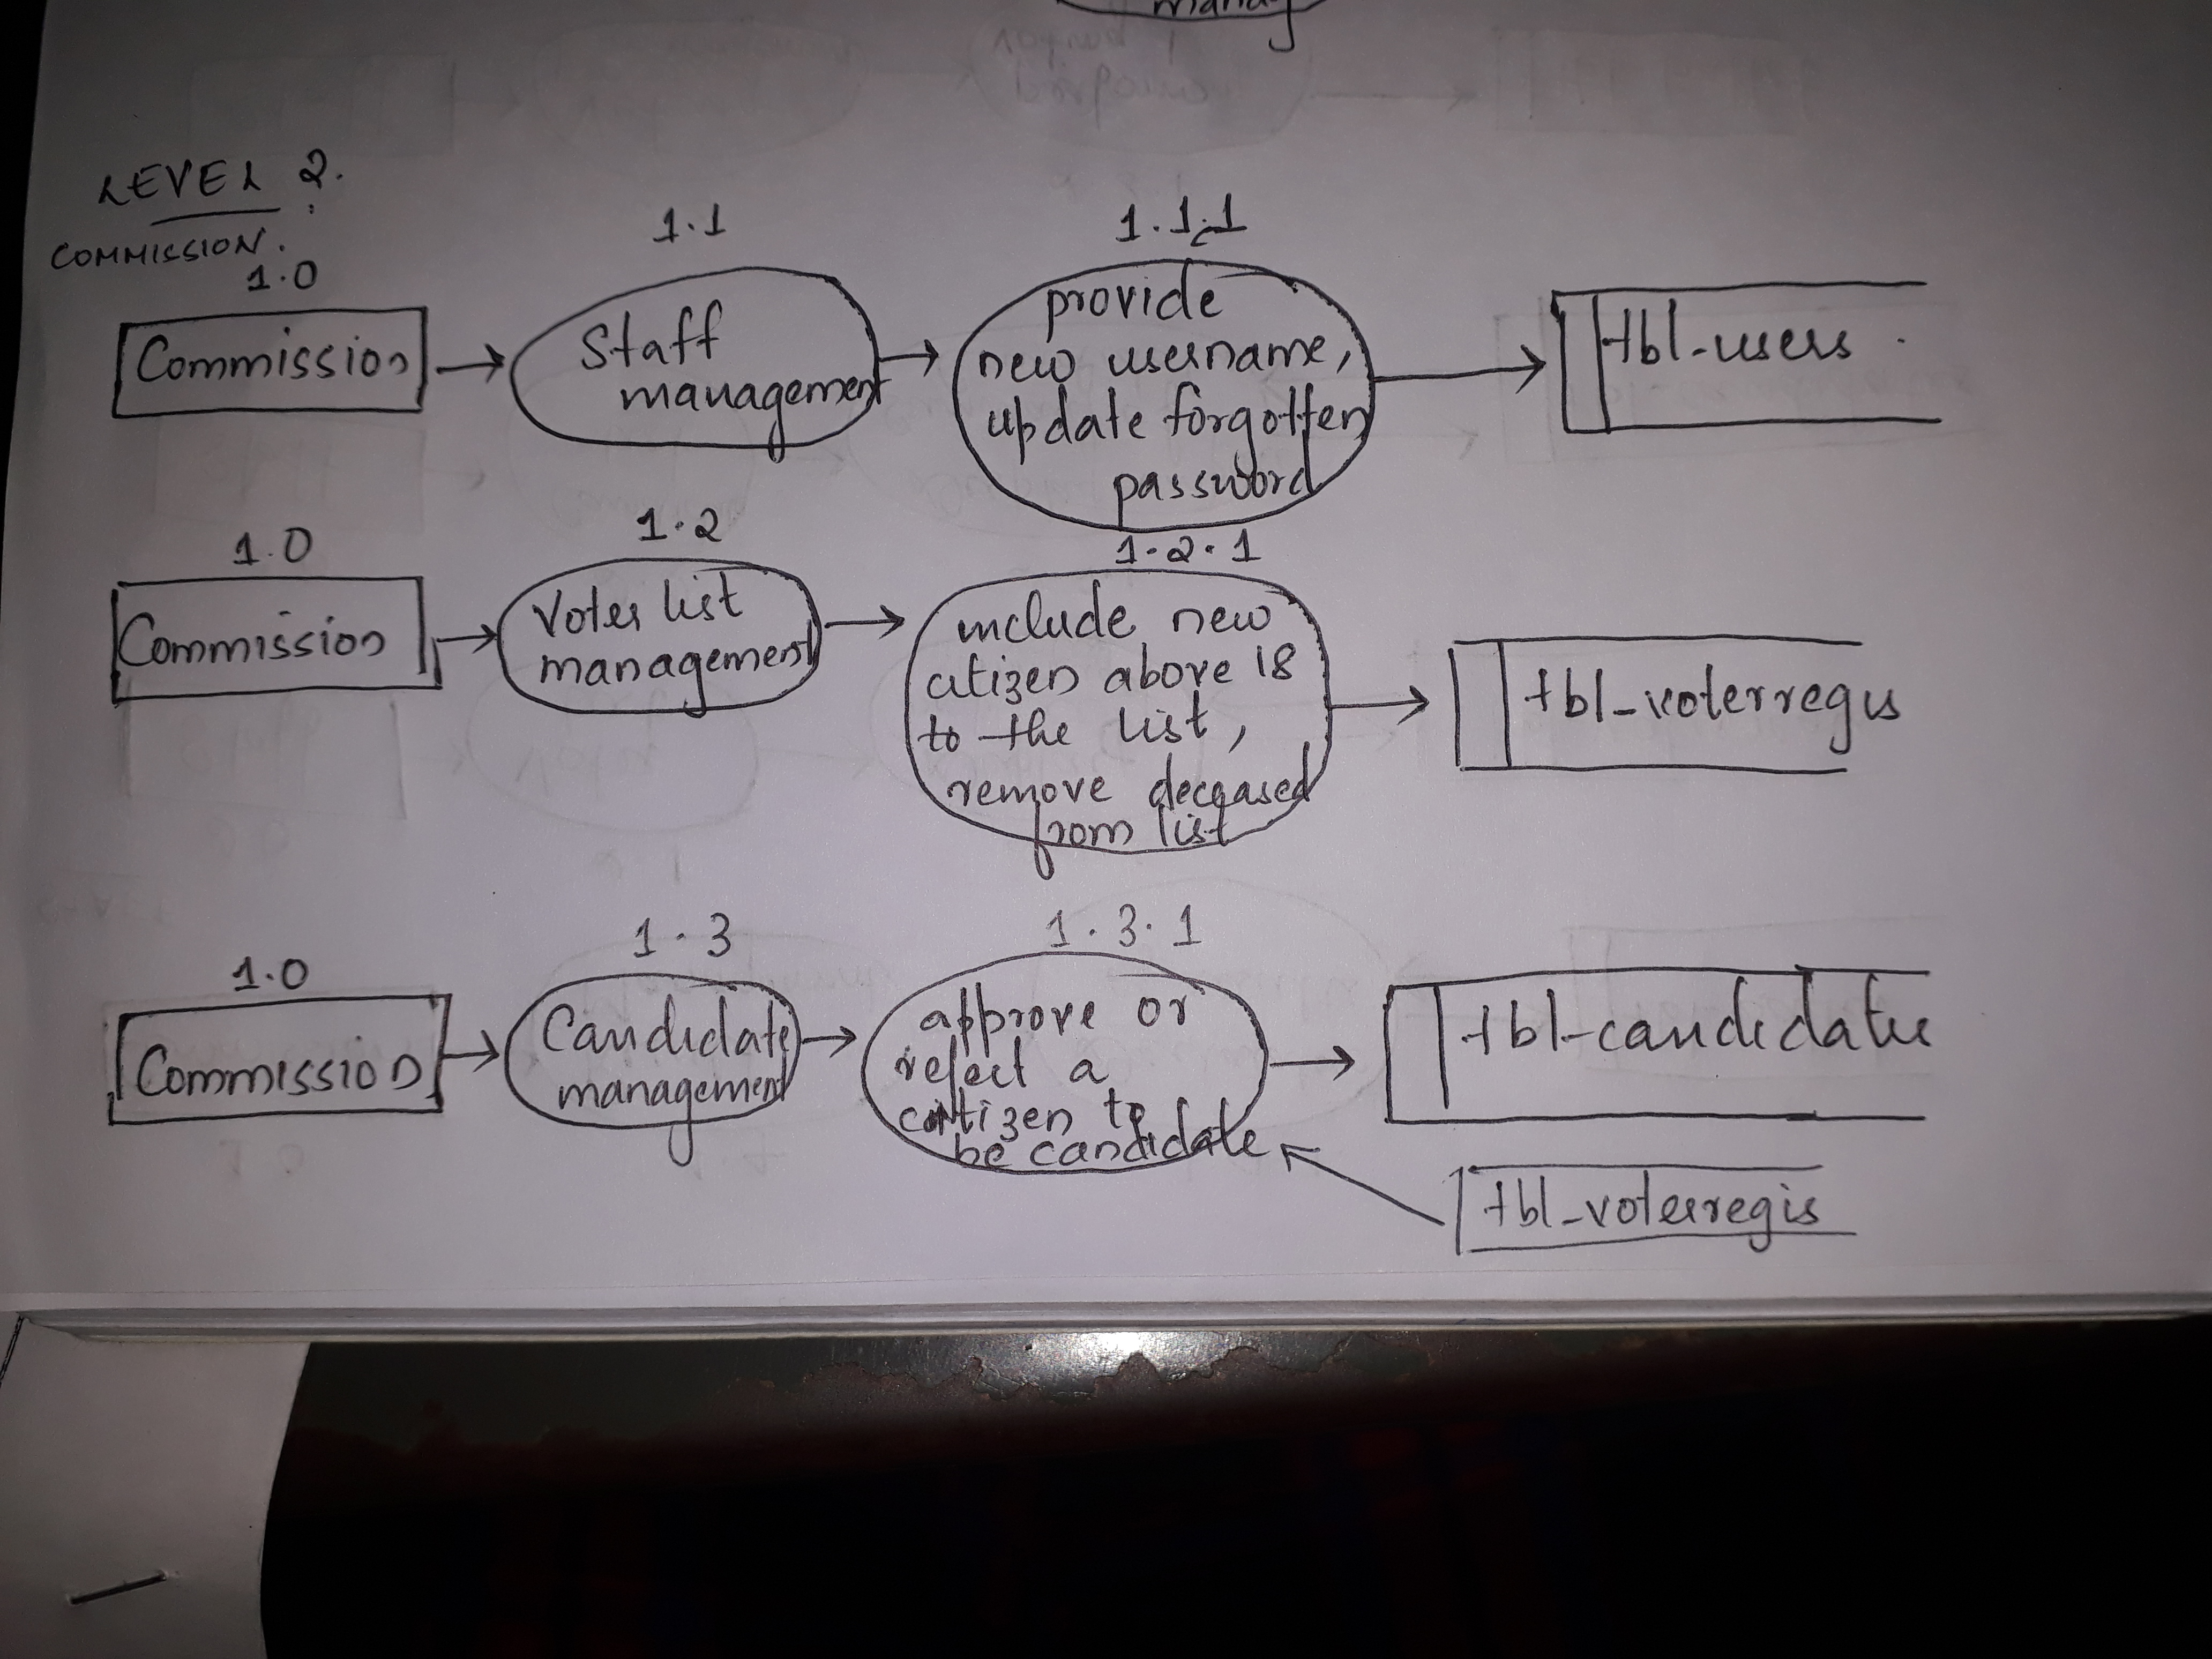 LEVEL 2.
COMMISSION.
1.0
1.1
1.1.1
Commission
Staff
management
provide
new username,
update forgotten
password
tbl-users
1.0
1.2
1.2.1
Commission
Voter list
management
include new
citizen above 18
to the list,
remove deceased
from list
tbl_voterregis
1.0
1.3
1.3.1
Commission
Candidate
management
approve or
reject a
citizen to
be candidate
tbl-candidates
tbl_voterregis